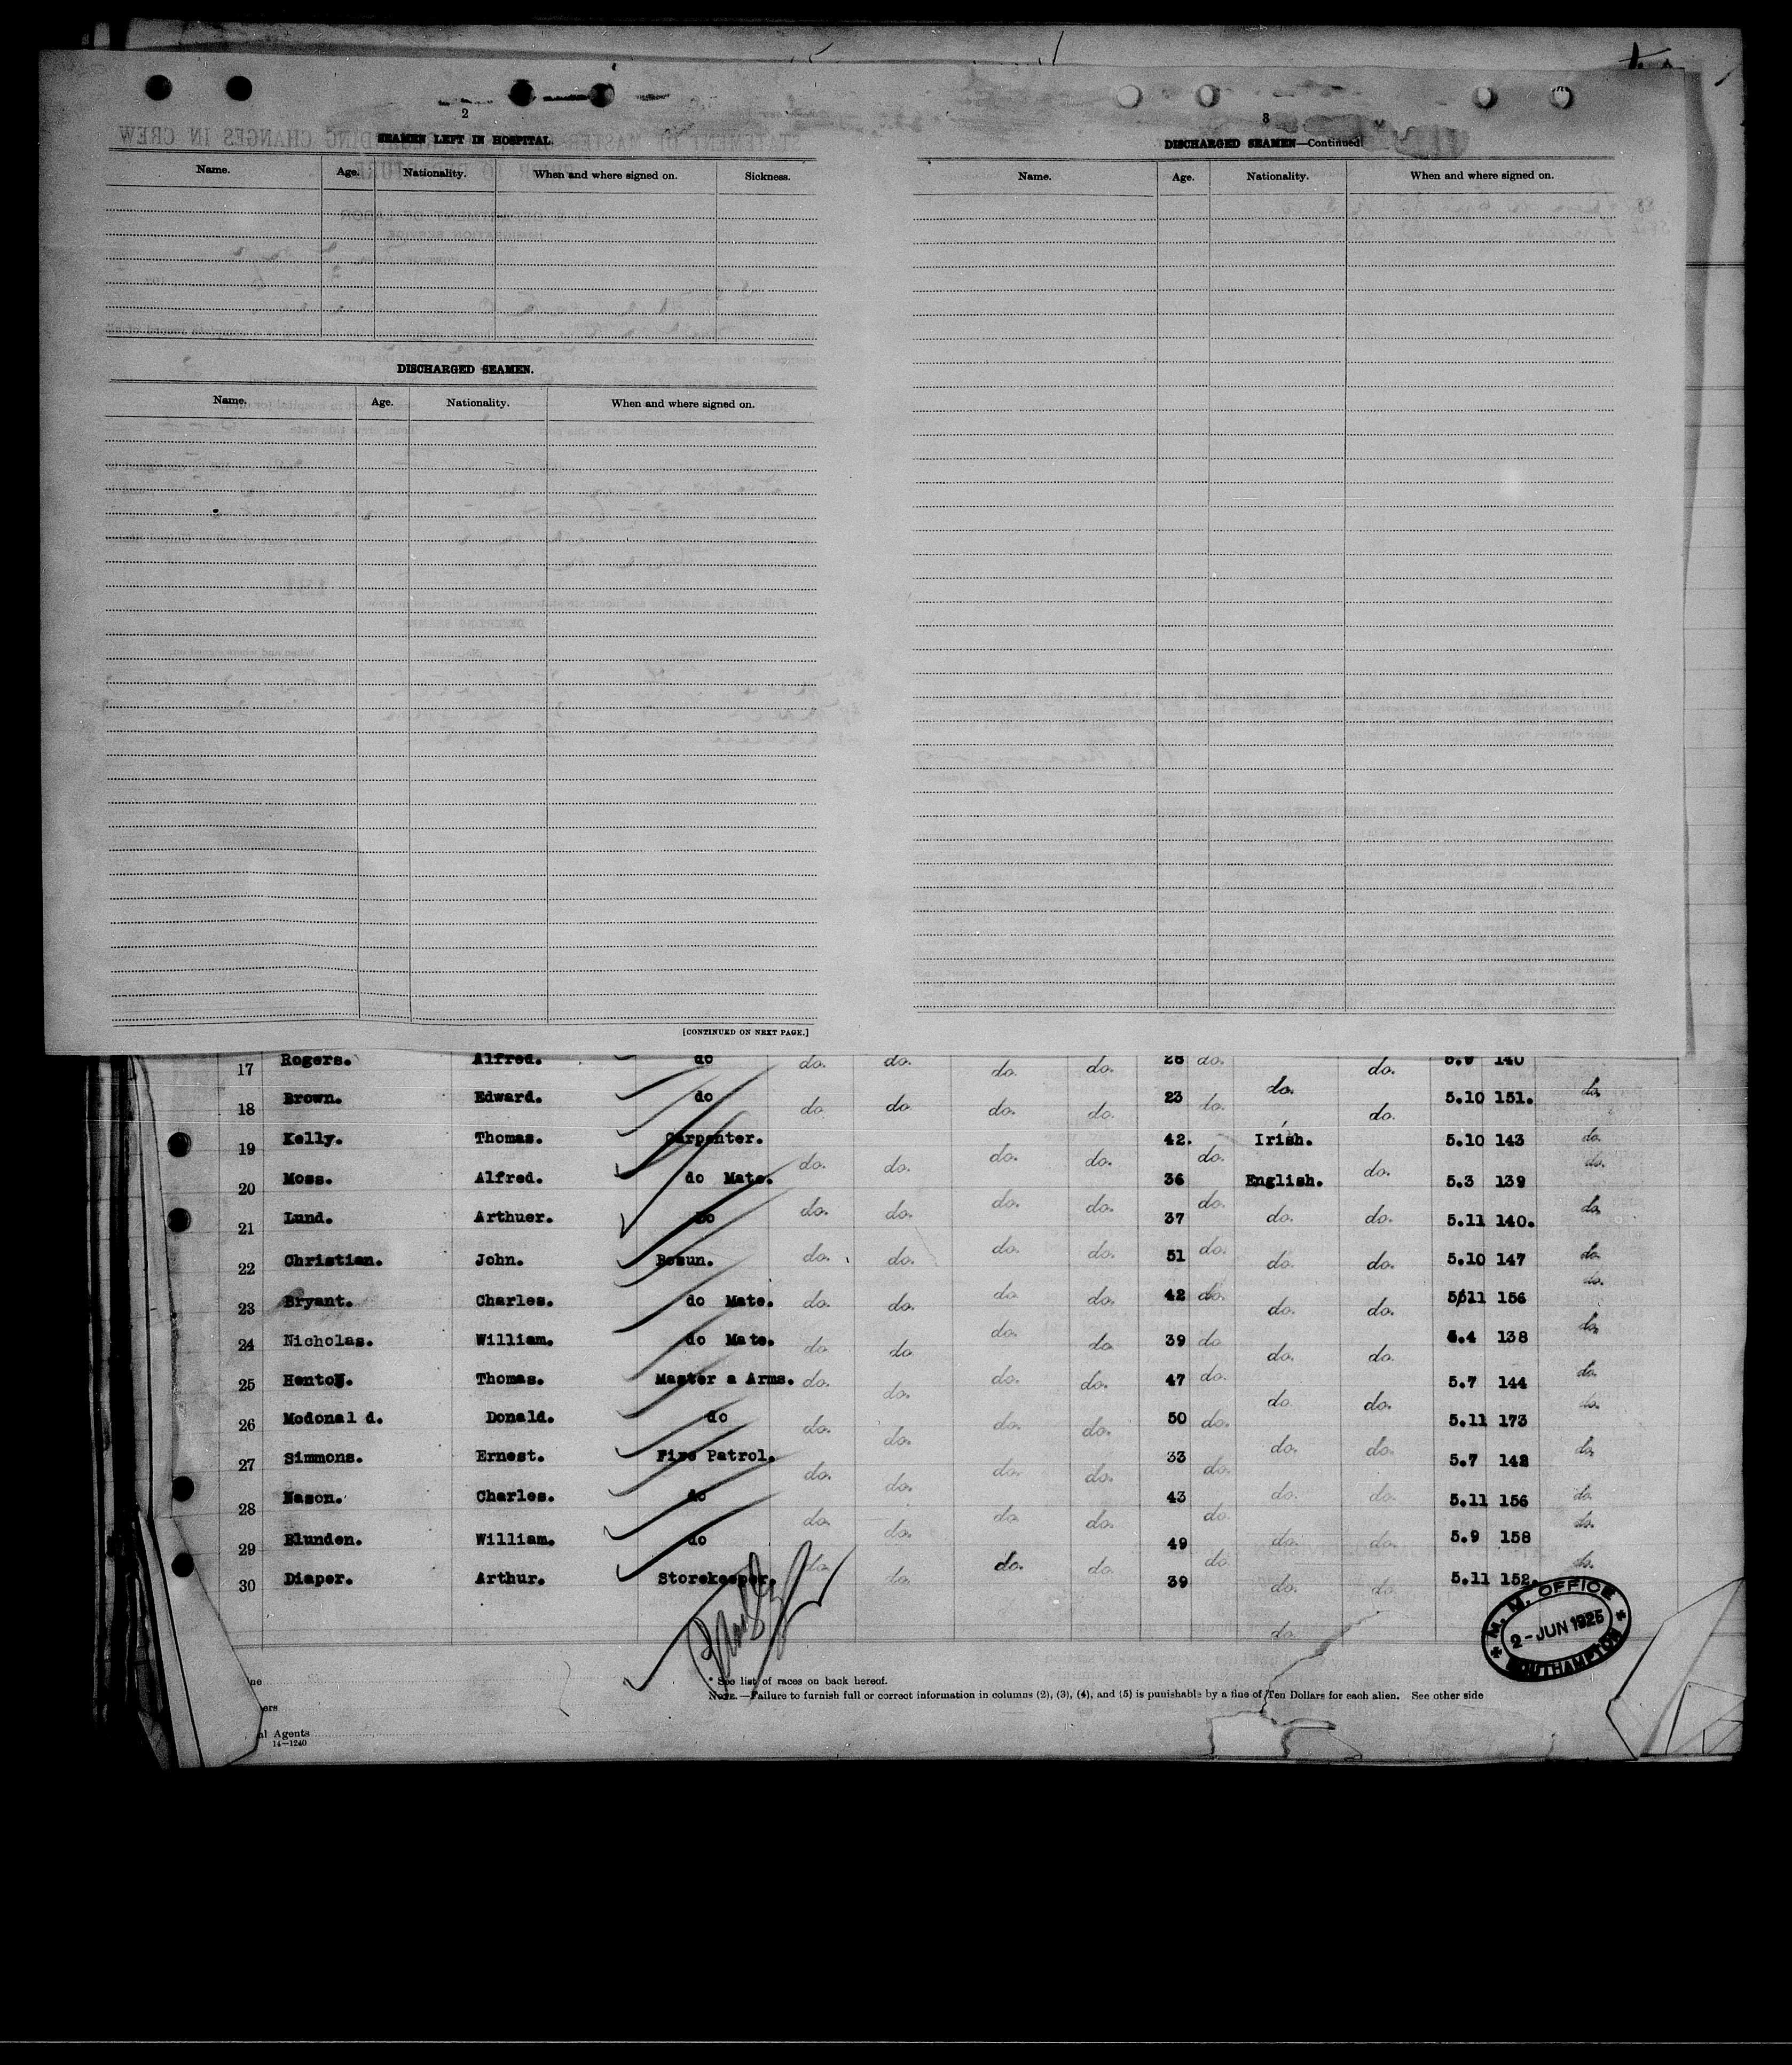 2
SEAMEN LEFT IN HOSPITAL.
Name. Age. Nationality. When and where signed on. Sickness.
DISCHARGED SEAMEN.
Name. Age. Nationality. When and where signed on.
[CONTINUED ON NEXT PAGE.]
3
DISCHARGED SEAMEN—Continued
Name. Age. Nationality. When and where signed on.
17 Rogers. Alfred. do do. do. do. do. 28 do. do. 5.9 140 do.
18 Brown. Edward. do do. do do. do. 23 do. do. do. 5.10 151. do.
19 Kelly. Thomas. Carpenter. do. do. do. do. 42. do. Irish. 5.10 143 do.
20 Moss. Alfred. do Mate. do. do. do. do. 36 do. English. do. 5.3 139 do.
21 Lund. Arthuer. do do. do. do. do. 37 do. do. do. 5.11 140. do.
22 Christian. John. Bosun. do. do. do. do. 51 do. do. do. 5.10 147 do.
23 Bryant. Charles. do Mate. do. do. do. do. 42 do. do. do. 5611 156 do.
24 Nicholas. William. do Mate. do. do do. do 39 do do. do. 5.4 138 do.
25 Henton. Thomas. Master a Arms. do. do. do. do. 47 do. do do. 5.7 144 do.
26 Modonal d. Donald. do do. do. do. do. 50 do. do. do. 5.11 173 do.
27 Simmons. Ernest. Fire Patrol. do. do. do. do. 33 do. do. do. 5.7 142 do.
28 Nason. Charles. do do. do. do. do. 43 do. do. do. 5.11 156 do.
29 Blunden. William. do do. do. do. do. 49 do. do. do. 5.9 158 do.
30 Diaper. Arthur. Storekeeper. do. do. do. do. 39 do. do. 5.11 152. do.
M. M. OFFICE
2-JUN 1925
SOUTHAMPTON
* See list of races on back hereof.
NOTE.—Failure to furnish full or correct information in columns (2), (3), (4), and (5) is punishable by a fine of Ten Dollars for each alien. See other side
ne
ers
al Agents
14—1240